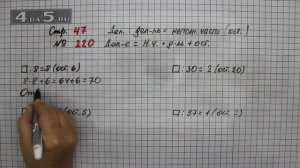 4 GDZ 5 .RU
Стр. 47
№ 220
Дел. : дел-ль = неполн. частн. (ост.)
Дел-е = Н.Ч. · д-ль + ост.
□ : 8 = 8 (ост. 6)
8·8+6=64+6=70
От
(ост. 5)
□ : 30 = 2 (ост. 20)
□ : 57 = 1 (ост. 2)